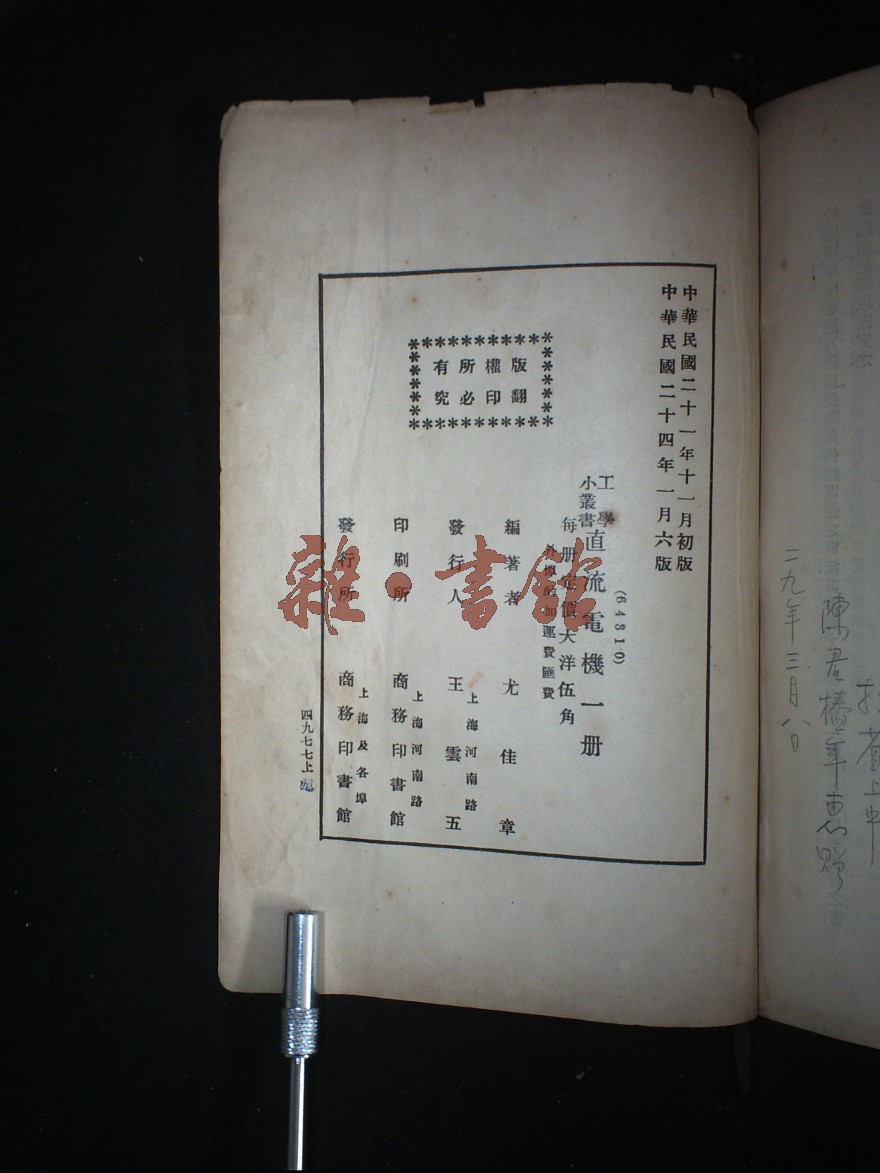 中華民國二十一年十一月初版
中華民國二十四年一月六版
工學
小叢書
直流電機一册
(64310)
每册定價大洋伍角
外埠酌加運費匯費
版權所有
翻印必究
編著者 尤佳章
發行人 王雲五
上海河南路
印刷所 商務印書館
上海河南路
發行所 商務印書館
上海及各埠
四九七七上
雜·書館
陳君
惠贈
二九年三月八日